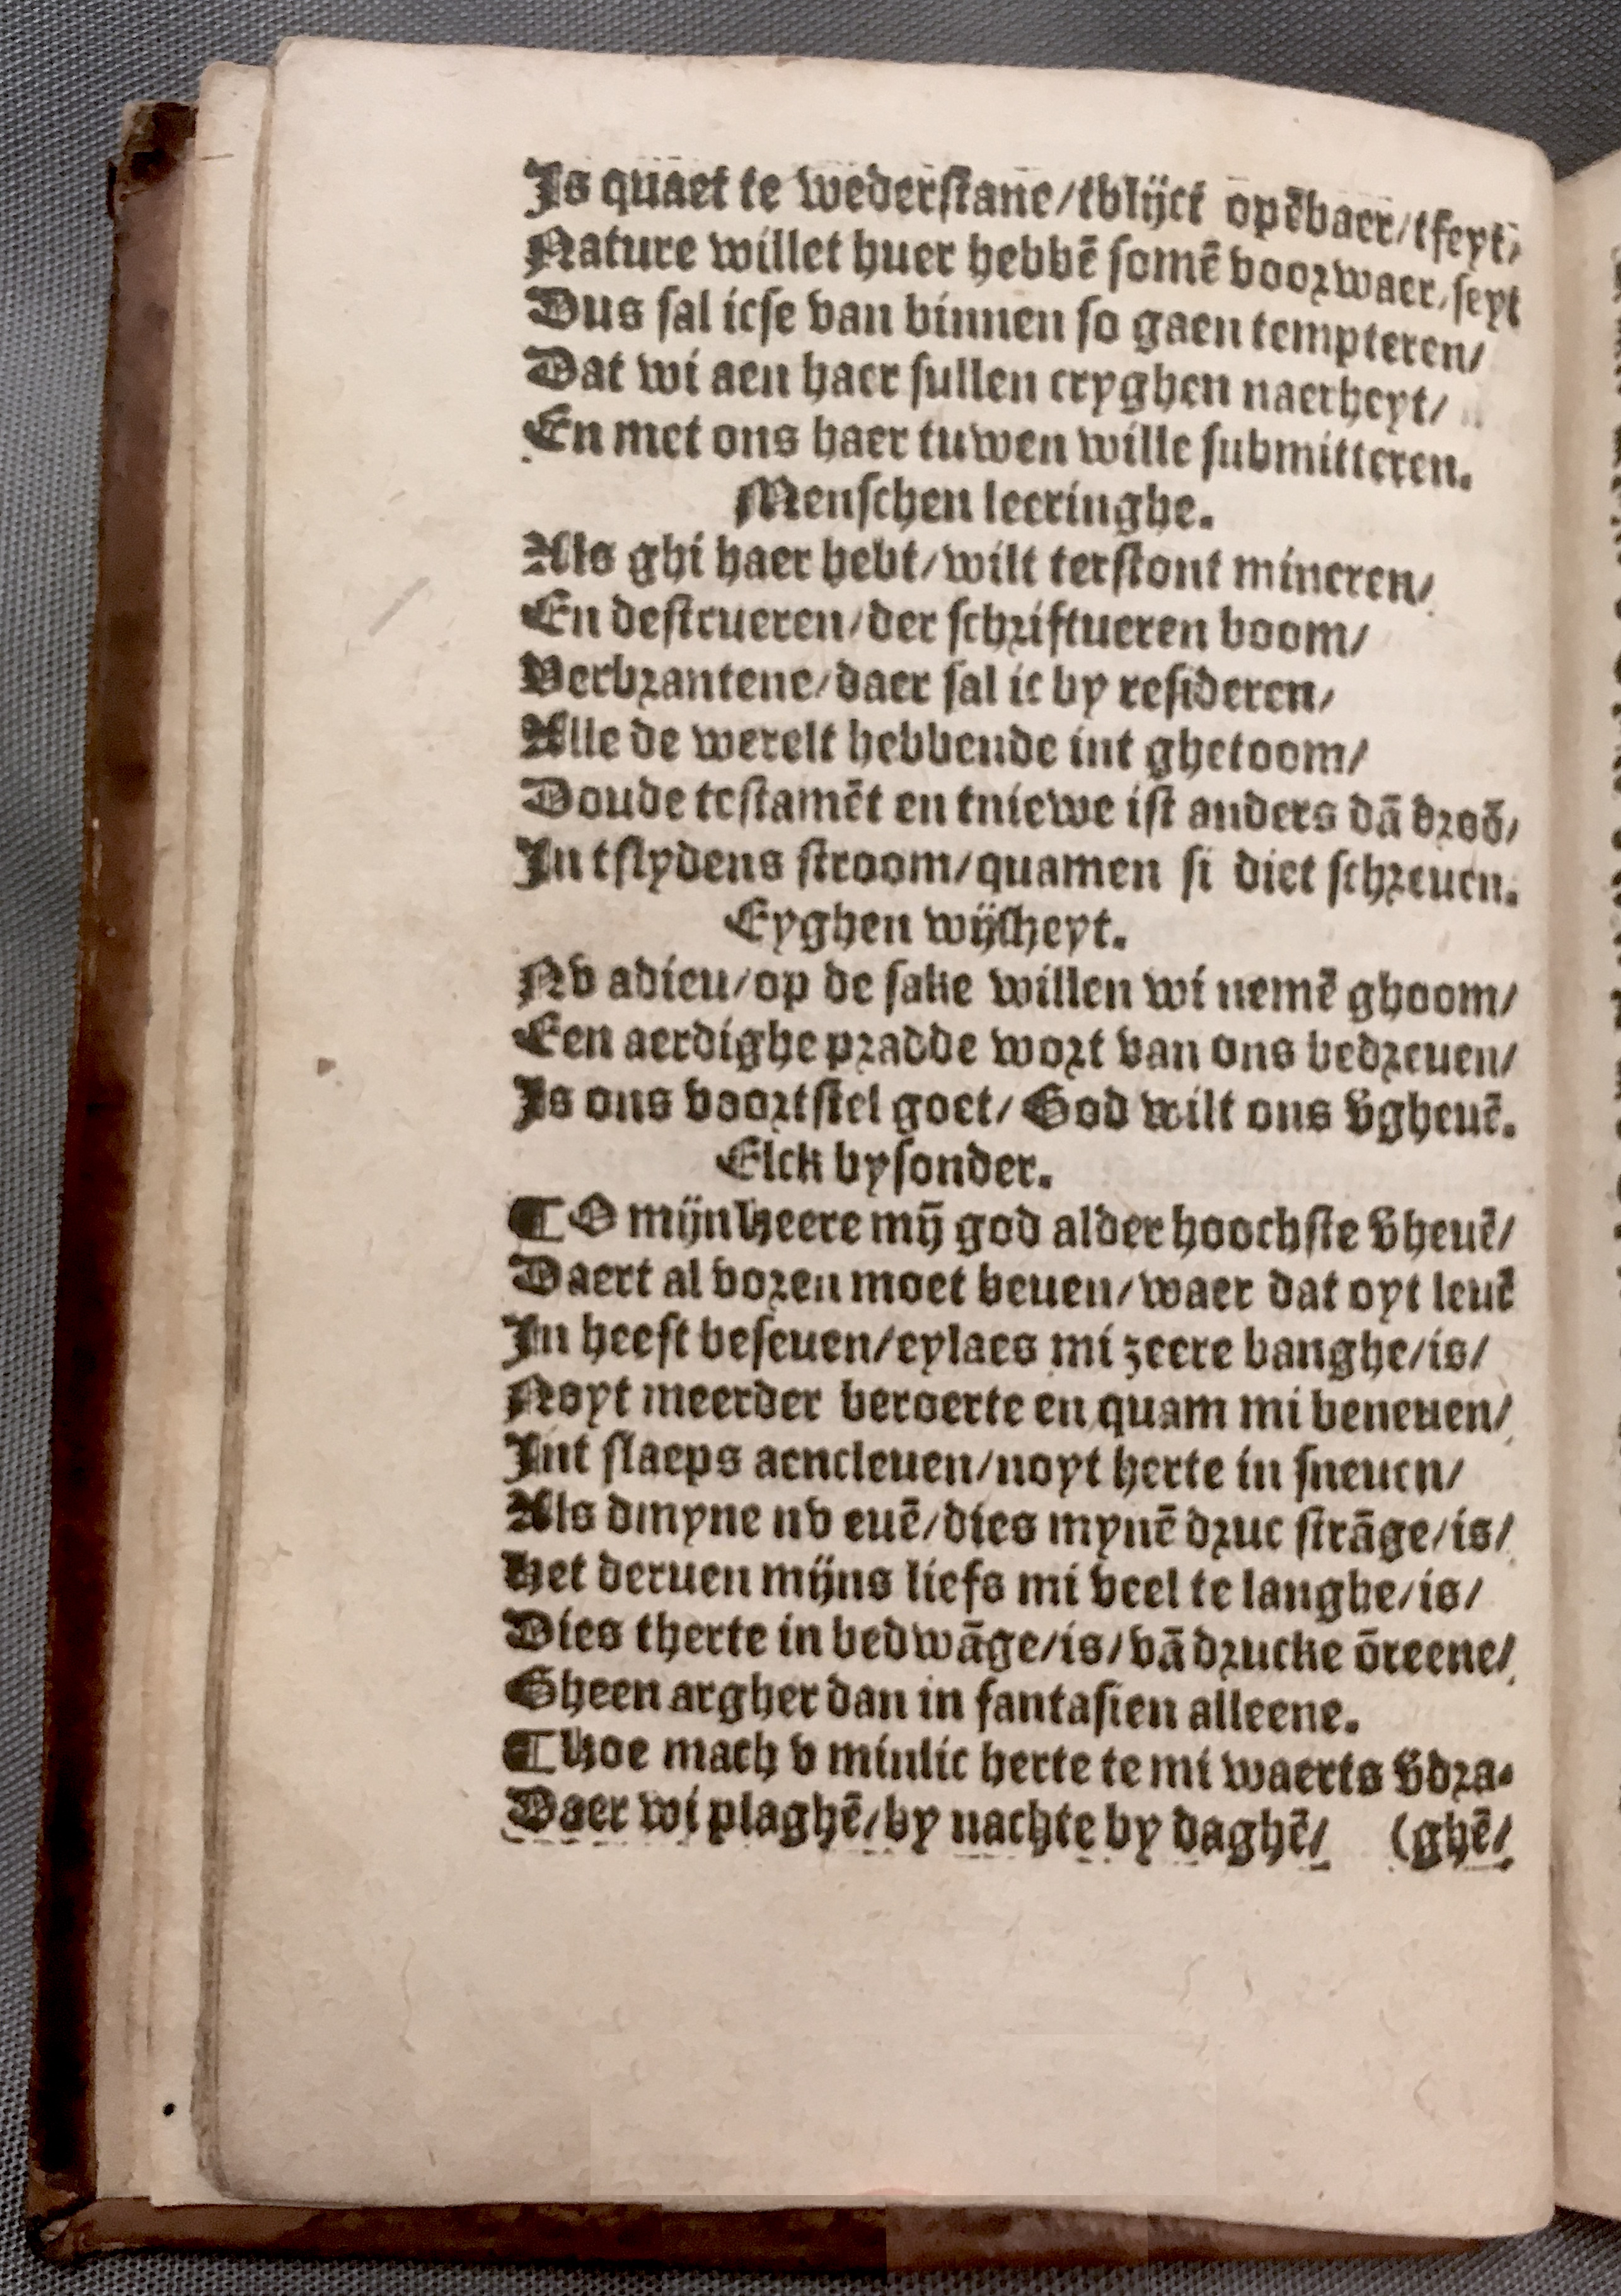 Is quaet te wederstane/tblijct opēbaer/tfeyt/
Nature willet huer hebbē somē voorwaer/seyt
Dus sal icse van binnen so gaen tempteren/
Dat wi aen haer sullen cryghen naerheyt/
En met ons haer tuwen wille submitteren.
Menschen leeringhe.
Als ghi haer hebt/wilt terstont mineren/
En destrueren/der schriftueren boom/
Verbrantene/daer sal ic by resideren/
Alle de werelt hebbende int ghetoom/
Doude testamēt en tniewe ist anders dā droō/
In tslydens stroom/quamen si diet schreuen.
Eyghen wijsheyt.
Nv adieu/op de sake willen wi nemē ghoom/
Een aerdighe pradde wort van ons bedreuen/
Is ons voortstel goet/God wilt ons v̄gheuē.
Elck bysonder.
¶O mijn heere mȳ god alder hoochste v̄heuē/
Daert al voren moet beuen/waer dat oyt leuē
In heeft beseuen/eylaes mi zeere banghe/is/
Noyt meerder beroerte en quam mi beneuen/
Int slaeps aencleuen/noyt herte in sneuen/
Als dmyne nv euē/dies mynē druc strāge/is/
Het deruen mijns liefs mi veel te langhe/is/
Dies therte in bedwāge/is/vā drucke ōreene/
Gheen argher dan in fantasien alleene.
¶Hoe mach v minlic herte te mi waerts v̄dra-
Daer wi plaghē/by nachte by daghē/ (ghē/